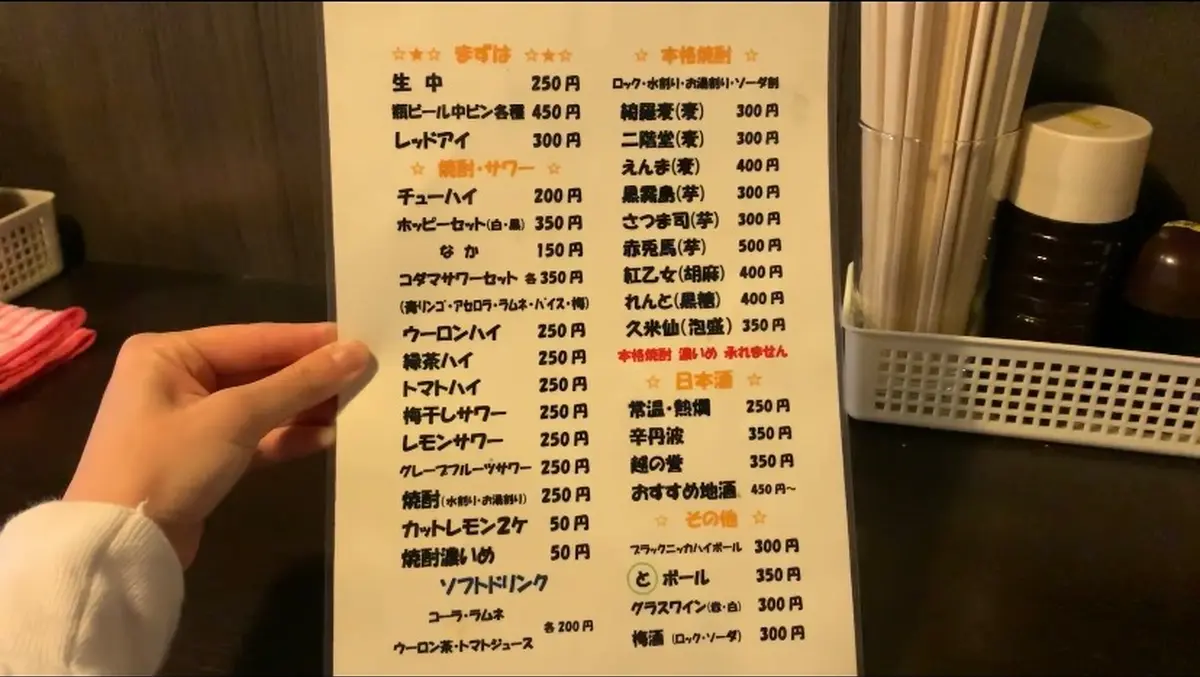 ☆★☆ まずは ☆★☆
生 中 250円
瓶ビール中ビン各種 450円
レッドアイ 300円
☆ 焼酎・サワー ☆
チューハイ 200円
ホッピーセット(白・黒) 350円
なか 150円
コダマサワーセット 各350円
(青リンゴ・アセロラ・ラムネ・バイス・梅)
ウーロンハイ 250円
緑茶ハイ 250円
トマトハイ 250円
梅干しサワー 250円
レモンサワー 250円
グレープフルーツサワー 250円
焼酎(水割り・お湯割り) 250円
カットレモン2ケ 50円
焼酎濃いめ 50円
ソフトドリンク
コーラ・ラムネ
各200円
ウーロン茶・トマトジュース
☆ 本格焼酎 ☆
ロック・水割り・お湯割り・ソーダ割
綺羅麦(麦) 300円
二階堂(麦) 300円
えんま(麦) 400円
黒霧島(芋) 300円
さつま司(芋) 300円
赤兎馬(芋) 500円
紅乙女(胡麻) 400円
れんと(黒糖) 400円
久米仙(泡盛) 350円
本格焼酎 濃いめ 承れません
☆ 日本酒 ☆
常温・熱燗 250円
辛丹波 350円
越の誉 350円
おすすめ地酒 450円~
☆ その他 ☆
ブラックニッカハイボール 300円
と ボール 350円
グラスワイン(赤・白) 300円
梅酒 (ロック・ソーダ) 300円